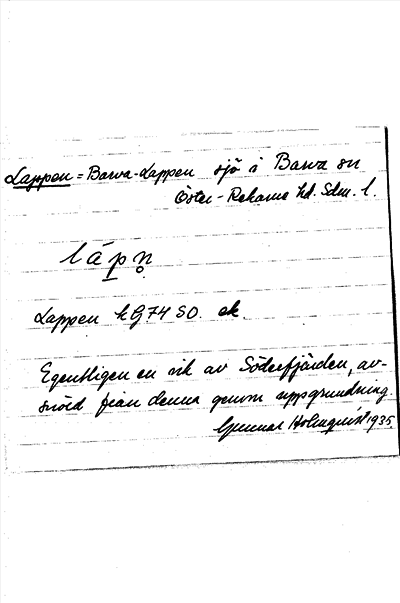 Lappen = Barva-Lappen sjö i Barva sn
Öster-Rekarne hd. Sdm. l.
lápn̥
Lappen k Bj 74 SO. ek
Egentligen en vik av Söderfjärden, av-
snörd från denna genom uppgrundning.
Gunnar Holmquist 1935.